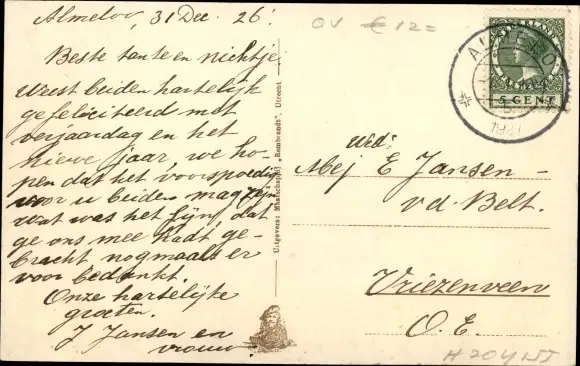 Almeloo, 31 Dec. 26.
Beste tante en nichtje
Weest beiden hartelijk
gefeliciteerd met
verjaardag en het
nieuwe jaar, we ho-
pen dat het voorspoedig
voor u beiden mag zijn
wat was het fijn, dat
ge ons mee hadt ge-
bracht nogmaals er
voor bedankt.
Onze hartelijke
groeten.
J Jansen en
vrouw
Uitgevers: Maatschappij „Rembrandt", Utrecht
OV € 12=
NEDERLAND
5 CENT
ALMELO
1927
Wed:
Mej E Jansen -
v.d. Belt.
Vriezenveen
O.E.